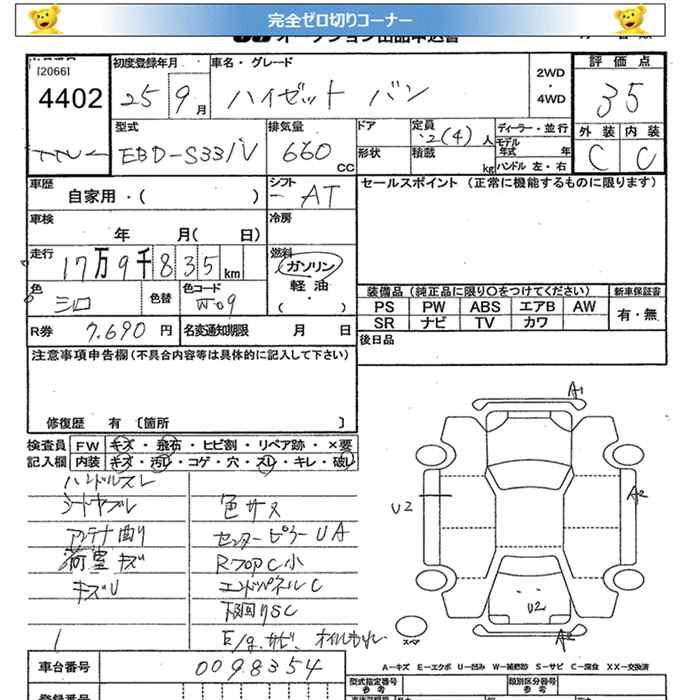 完全ゼロ切りコーナー
オークション出品申込書
[2066]
4402
初度登録年月
25年 9月
車名・グレード
ハイゼット バン
2WD
・
4WD
評価点
35
型式
EBD-S331V
排気量
660
CC
ドア
定員
2(4)人
形状
積載
kg
ディーラー・並行
モデル年式 年
ハンドル 左・右
外装 内装
C C
車歴
自家用・( )
シフト
AT
セールスポイント (正常に機能するものに限ります)
車検
年 月( 日)
冷房
走行
17万9千835km
燃料
ガソリン
軽油
( ・ )
色
シロ
色替
色コード
W09
装備品 (純正品に限り○をつけてください)
新車保証書
PS PW ABS エアB AW
SR ナビ TV カワ
有・無
R券
7,690円
名変通知期限 月 日
後日品
注意事項申告欄(不具合内容等は具体的に記入して下さい)
修復歴 有 〔箇所 〕
検査員
記入欄
FW キズ・飛石・ヒビ割・リペア跡・×要
内装 キズ・汚レ・コゲ・穴・スレ・キレ・破レ
ハンドルスレ
シートヤブレ
色サメ
アンテナ曲り
センターピラーUA
荷室キズ
RフロアC小
キズU
エンドパネルC
下回りSC
E/gサビ、オイルもれ
A1
U2
A2
U2
A2
スペア
A-キズ E-エクボ U-凹み W-補修跡 S-サビ C-腐食 XX-交換済
車台番号
0098354
型式指定番号
参考
類別区分番号
参考
登録番号